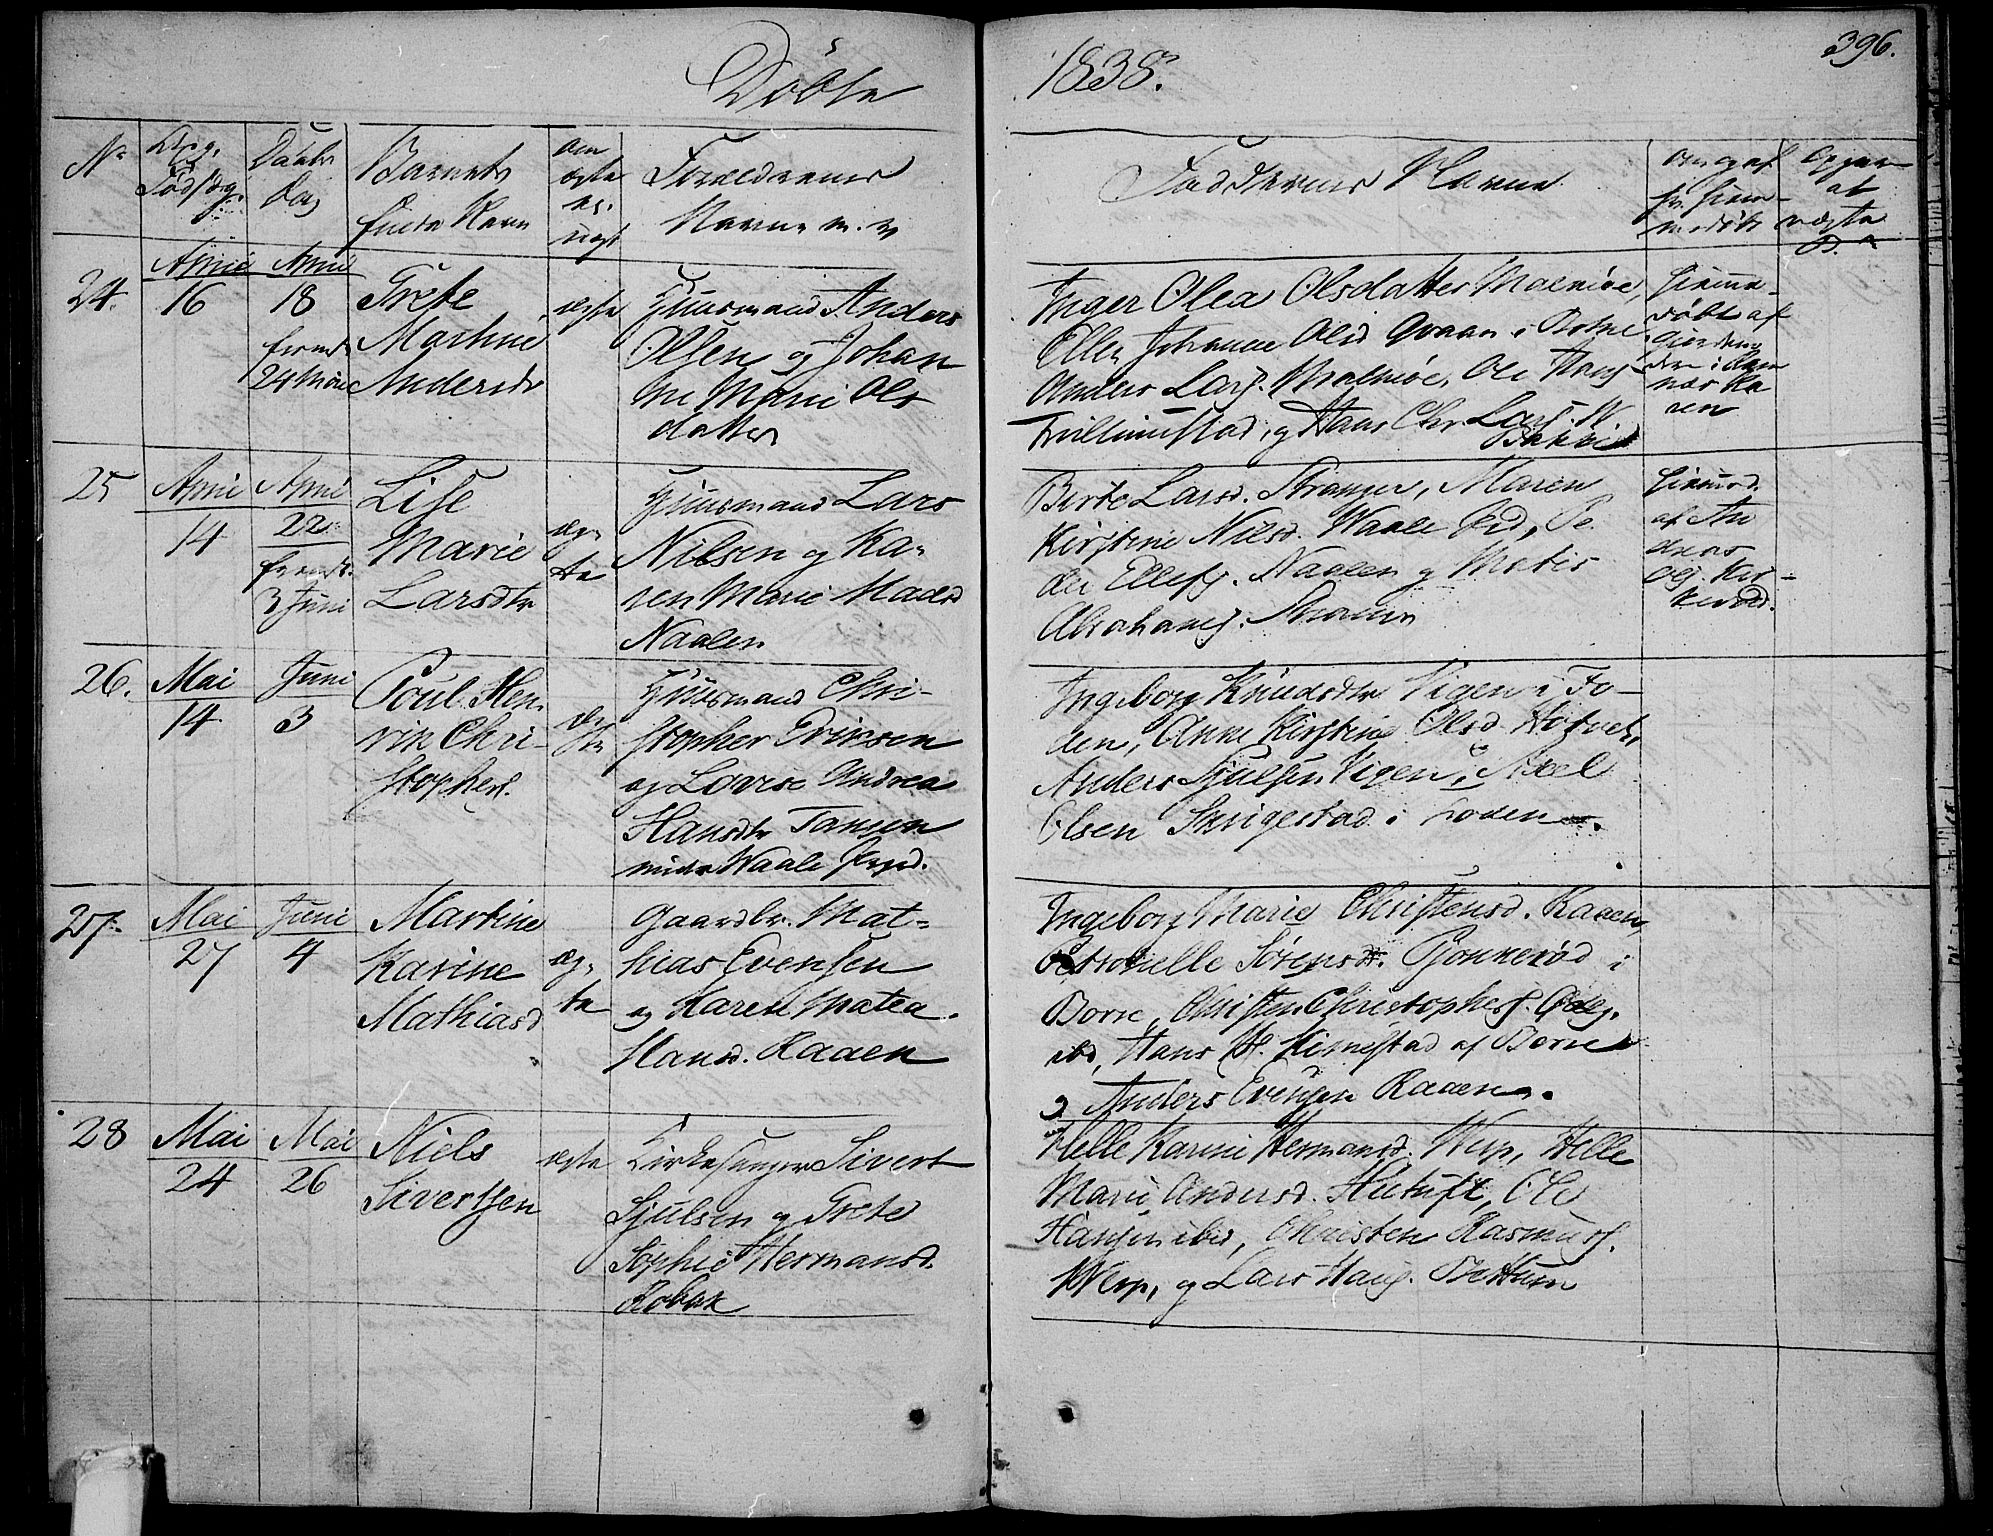 Döbte
1838.
396.
No
Dag,
Fødsdag
Daabs
Dag
Barnets
fulde Navn
om
ægte
el.
uægt
Forældrenes
Navne m. v
Faddernes Navne
om og af
hv. hiem-
medøbt
Opgave
at
uægte
24.
April
16
April
18
fremst
24 Mai
Grete
Martine
Andersdr
ægte
Huusmand Anders
Olsen og Johan
ne Marie Ols
datter
Inger Olea Olsdatter Malmöe,
Ellen Johanne Olsd i Botne
Anders Lars. Malmöe, Ole Hans
og Hans Chr. Lars. N.
Bakke
hiemme-
döbt af
i Ram
næs Ka
ren
25
April
14
April
22
fremst.
3 Juni
Lise
Marie
Larsdtr
æg-
te
Huusmand Lars
Nilsen og Ka-
ren Marie Madsd
Naalen
Birte Larsd. Stranger, Maren
Kirstine Nilsd. Waale Pd, Pe
der Ellefs. Naalen og Matis
Abrahams.
hiemmd.
af An
dreas
Ols. Kir-
kevold.
26.
Mai
14
Juni
3
Poul Hen-
rik Chri-
stophers.
æg
te
Huusmand Chri-
stopher Eriksen
og Lovise Andrea
Hansdtr Tansen
under Waale Prgd.
Ingeborg Knudsdtr Vigen i Fo-
den, Anne Kirstine Olsd Hotvet,
Anders Sjulsen Vigen, Axel
Olsen Skrigestad i Foden.
27.
Mai
27
Juni
4
Martine
Karine
Mathiasd
æg-
te
Gaardbr. Mat-
hias Evensen
og Karen Matea
Hansd. Raaen
Ingeborg Marie Christensd. Raaen,
Petronelle Sörensdr. Gjonneröd i
Borre, Christen Christophers.
ibd, Hans H. Kimestad af Borre
og Anders Evensen Raaen.
28
Mai
24
Mai
26
Niels
Sivertsen
ægte
Kirkesanger Sivert
Sjulsen og Grete
Sophie Hermansd.
Robak
Helle Karine Hermansd. Werp, Helle
Marie Andersd. Hutuft, Ole
Hansen ibid, Christen Rasmus.
Werp, og Lars Hans. Bettum